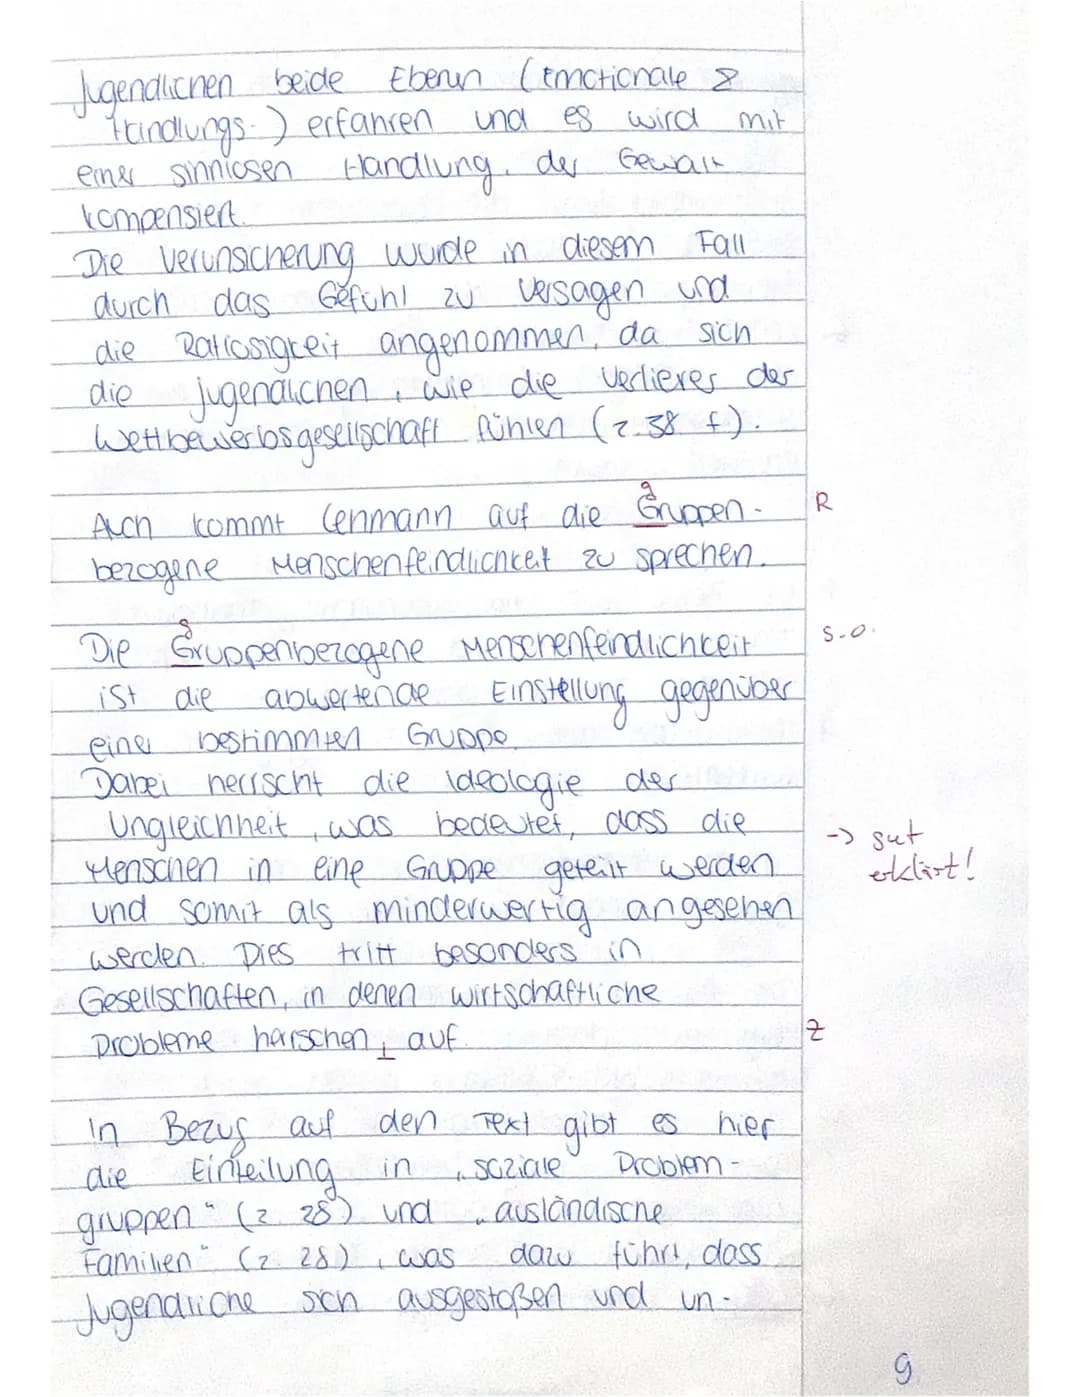 Jugendlichen beide Ebenen (Emotionale &
Handlungs-) erfahren und es wird mit
einer sinnlosen Handlung, der Gewalt
kompensiert.
Die Verunsicherung wurde in diesem Fall
durch das Gefühl zu Versagen und
die Ratlosigkeit angenommen, da sich
die jugendlichen, wie die Verlierer der
Wettbewerbsgesellschaft fühlen (z. 38 f).
g
Auch kommt Lehmann auf die Gruppen- R
bezogene Menschenfeindlichkeit zu sprechen.
g
Die Gruppenbezogene Menschenfeindlichkeit s.o.
ist die abwertende Einstellung gegenüber
einer bestimmten Gruppe.
Dabei herrscht die Ideologie der
Ungleichheit, was bedeutet, dass die -> gut
Menschen in eine Gruppe geteilt werden erklärt!
und somit als minderwertig angesehen
werden. Dies tritt besonders in
Gesellschaften, in denen wirtschaftliche
Probleme harschen, auf. Z
In Bezug auf den Text gibt es hier
die Einteilung in „soziale Problem-
gruppen" (z. 28) und „ausländische
Familien" (z. 28), was dazu führt, dass
Jugendliche sich ausgestoßen und un-
9